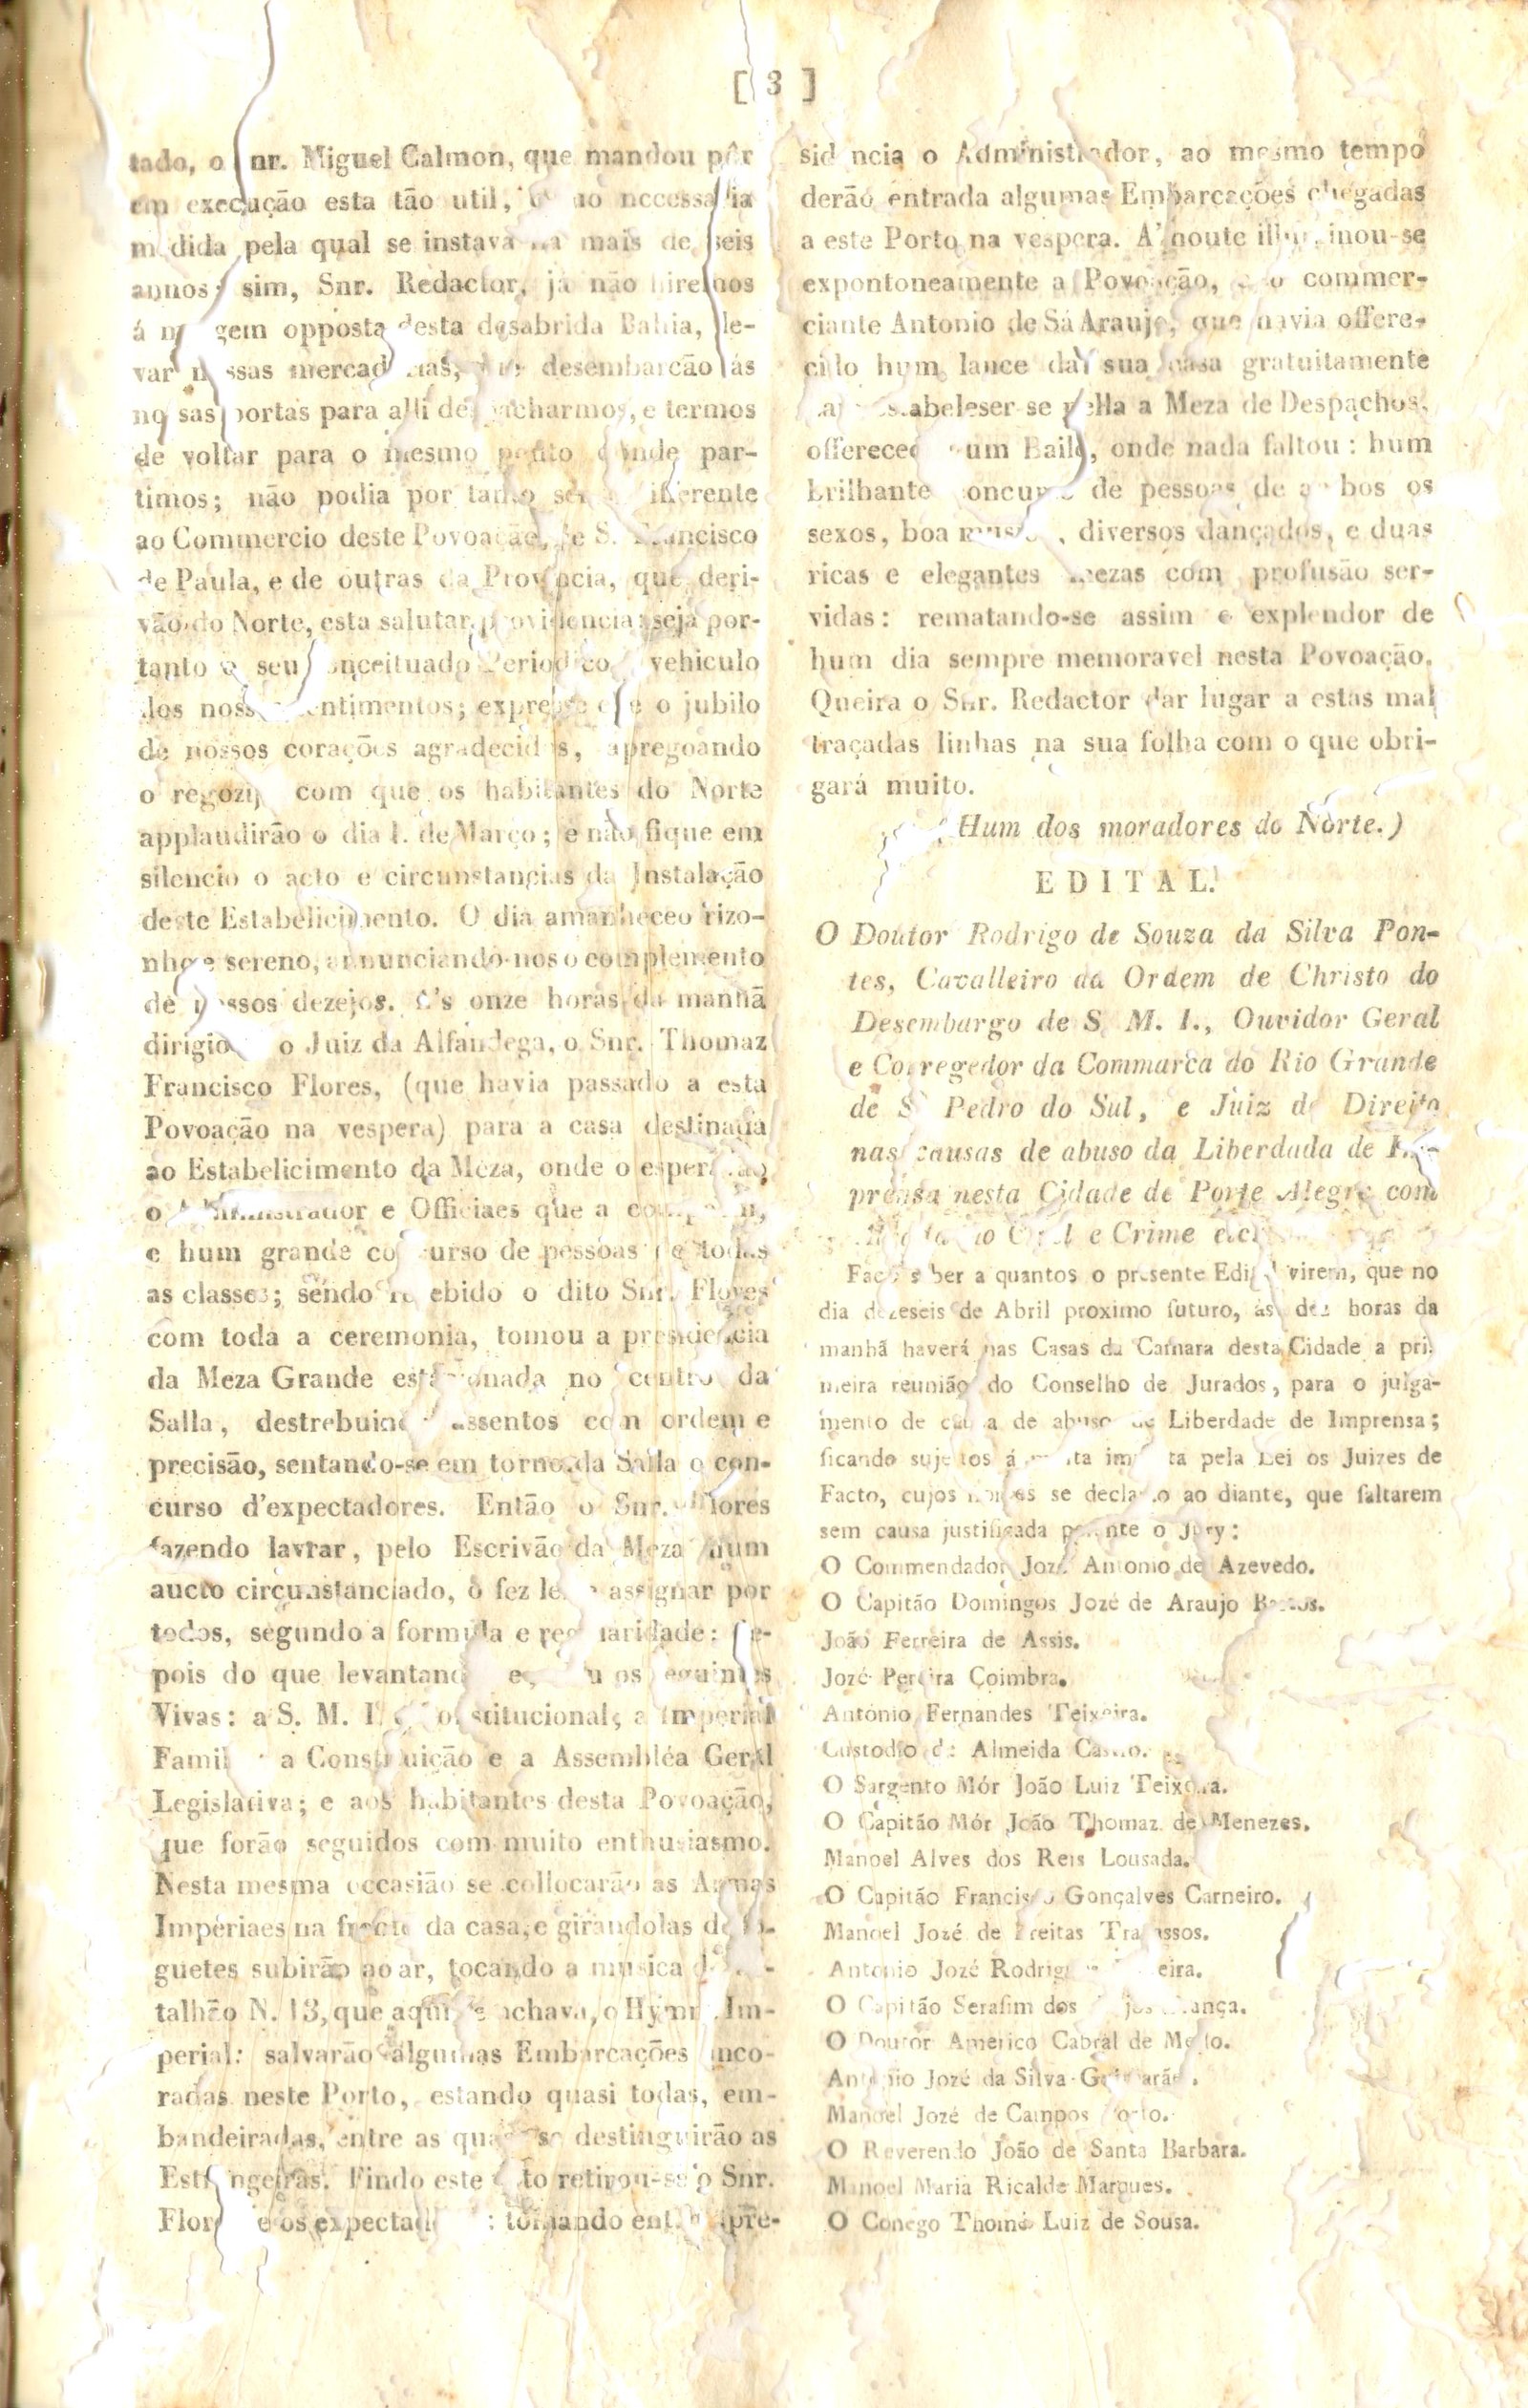 [ 3 ]
tado, o nr. Miguel Calmon, que mandou pôr
em execução esta tão util, necessaria
medida pela qual se instava mais de seis
annos; sim, Snr. Redactor, já não hiremos
á gem opposta desta desabrida Bahia, le-
var nossas mercad que desembarcão ás
nossas portas para alli despacharmos, e termos
de voltar para o mesmo ponto donde par-
timos; não podia por tanto ser
ao Commercio deste Povoação, de S. Francisco
de Paula, e de outras da Provincia, que deri-
vão do Norte, esta salutar providencia: seja por-
tanto o seu conceituado Periodico vehiculo
dos nossos sentimentos; expresse o jubilo
de nossos corações agradecidos, apregoando
o regozijo com que os habitantes do Norte
applaudirão o dia 1. de Março; e não fique em
silencio o acto e circunstancias da Instalação
deste Estabelicimento. O dia amanheceo rizo-
nho e sereno, annunciando-nos o complemento
de nossos dezejos. A's onze horas da manhã
dirigio o Juiz da Alfandega, o Snr. Thomaz
Francisco Flores, (que havia passado a esta
Povoação na vespera) para a casa destinada
ao Estabelicimento da Meza, onde o esperavão
o Administrador e Officiaes que a
e hum grande concurso de pessoas de todas
as classes; sendo recebido o dito Snr. Flores
com toda a ceremonia, tomou a presidencia
da Meza Grande estacionada no centro da
Salla, destrebuindo assentos com ordem e
precisão, sentando-se em torno da Salla o con-
curso d'expectadores. Então o Snr. Flores
fazendo lavrar, pelo Escrivão da Meza hum
aucto circunstanciado, o fez ler e assignar por
todos, segundo a formula e regularidade: de-
pois do que levantando os seguintes
Vivas: a S. M. I. Constitucional; a Imperial
Familia a Constituição e a Assembléa Geral
Legislativa; e aos habitantes desta Povoação,
que forão seguidos com muito enthusiasmo.
Nesta mesma occasião se collocarão as Armas
Imperiaes na frente da casa, e girandolas de fo-
guetes subirão ao ar, tocando a musica do Ba-
talhão N. 13, que aqui se achava, o Hymno Im-
perial: salvarão algumas Embarcações anco-
radas neste Porto, estando quasi todas, em-
bandeiradas, entre as quaes se destinguirão as
Estrangeiras. Findo este acto retirou-se o Snr.
Flores e os expectad : tomando pre-
sidencia o Administrador, ao mesmo tempo
derão entrada algumas Embarcações chegadas
a este Porto na vespera. A' noute illuminou-se
expontoneamente a Povoação, e o commer-
ciante Antonio de Sá Araujo, que havia offere-
cido hum lance da sua casa gratuitamente
estabeleser-se nella a Meza de Despachos,
offereceo hum Baile, onde nada faltou: hum
brilhante concurso de pessoas de ambos os
sexos, boa musica, diversos dançados, e duas
ricas e elegantes mezas com profusão ser-
vidas: rematando-se assim o explendor de
hum dia sempre memoravel nesta Povoação.
Queira o Snr. Redactor dar lugar a estas mal
traçadas linhas na sua folha com o que obri-
gará muito.
(Hum dos moradores do Norte.)
EDITAL.
O Doutor Rodrigo de Souza da Silva Pon-
tes, Cavalleiro da Ordem de Christo do
Desembargo de S. M. I., Ouvidor Geral
e Corregedor da Commarca do Rio Grande
de S. Pedro do Sul, e Juiz de Direito
nas causas de abuso da Liberdada de Im-
prensa nesta Cidade de Porte Alegre com
e Crime
Faço saber a quantos o presente Edital virem, que no
dia dezeseis de Abril proximo futuro, ás dez horas da
manhã haverá nas Casas da Camara desta Cidade a pri-
meira reunião do Conselho de Jurados, para o julga-
mento de causa de abuso de Liberdade de Imprensa;
ficando sujeitos á multa imposta pela Lei os Juizes de
Facto, cujos nomes se declarão ao diante, que faltarem
sem causa justificada perante o Jury:
O Commendador Jozé Antonio de Azevedo.
O Capitão Domingos Jozé de Araujo Bastos.
João Ferreira de Assis.
Jozé Pereira Coimbra.
Antonio Fernandes Teixeira.
Custodio de Almeida Castro.
O Sargento Mór João Luiz Teixeira.
O Capitão Mór João Thomaz de Menezes.
Manoel Alves dos Reis Lousada.
O Capitão Francisco Gonçalves Carneiro.
Manoel Jozé de Freitas Travassos.
Antonio Jozé Rodrigues eira.
O Capitão Serafim dos Anjos França.
O Doutor Americo Cabral de Mello.
Antonio Jozé da Silva Guimarães.
Manoel Jozé de Campos Porto.
O Reverendo João de Santa Barbara.
Manoel Maria Ricalde Marques.
O Conego Thomé Luiz de Sousa.